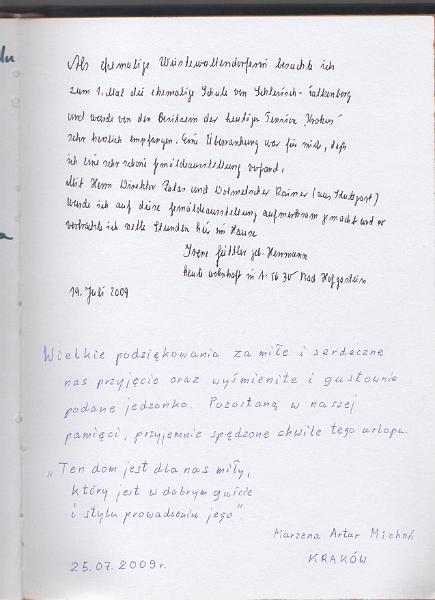 Als ehemalige Wüstewaltersdorferin besuchte ich
zum 1. Mal die ehemalige Schule von Schlesisch-Falkenberg
und wurde von den Besitzern der heutigen Pension "Krokus"
sehr herzlich empfangen. Eine Überraschung war für mich, daß
ich eine sehr schöne Gemäldeausstellung vorfand.
Mit Herrn Direktor und Rainer (aus Stuttgart)
wurde ich auf diese Gemäldeausstellung aufmerksam gemacht und so
verbrachte ich nette Stunden hier im Hause
Irene Güttler geb. Herrmann
heute wohnhaft in A-5630 Bad Hofgastein
19. Juli 2009
Wielkie podziękowania za miłe i serdeczne
nas przyjęcie oraz wyśmienite i gustownie
podane jedzonko. Pozostaną w naszej
pamięci, przyjemnie spędzone chwile tego urlopu.
„Ten dom jest dla nas miły,
który jest w dobrym guście
i stylu prowadzeniu jego".
Marzena Artur Michoń
KRAKÓW
25.07.2009r.